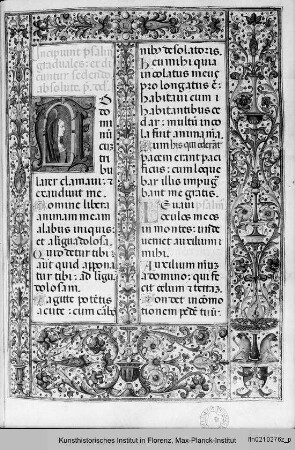 Incipiunt psalmi
graduales: et di
cuntur sedendo
absolute p. red.
Ad
do
mi
nū
cuz
tri
bu
larer clamaui: ⁊
exaudiuit me.
Domine libera
animam meam
a labijs iniquis:
et a ligua dolosa.
Quid detur tibi:
aut quid appona
tur tibi: ad ligu
dolosam.
Sagitte potētis
acute: cum cabo
nibꝰ desolatorijs.
Heu mihi quia
incolatus meus
prolongatus ē:
habitaui cum
habitantibus ce
dar: multū inco
la fuit anima mīa.
Cum his qui oderāt
pacem eram paci
ficus: cum loque
bar illis impug
bant me gratis.
Leuaui ps.
oculos meos
in montes: unde
ueniet auxilium
mihi.
Auxilium meuz
a domino: qui fe
cit celum et terraz.
Non det in cōmo
tionem pedē tuū:
Kunsthistorisches Institut in Florenz, Max-Planck-Institut
fln0210276z_p